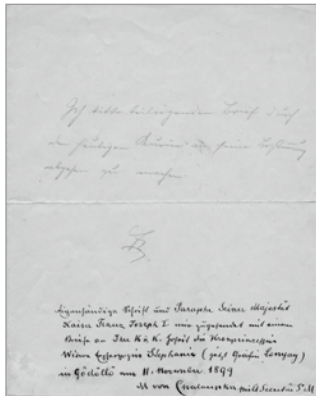 Ich bitte beiliegenden Brief durch
den heutigen Kurier an seine
abgehen zu machen
Eigenhändige Schrift und Paraphe Seiner Majestät
Kaiser Franz Joseph I. mir zugesendet mit einem
Briefe an Ihre k. u. k. Hoheit die Kronprinzessin
Witwe Erzherzogin Stephanie (jetzt Gräfin Lonyay)
in Gödöllö am 11. November 1899
M von